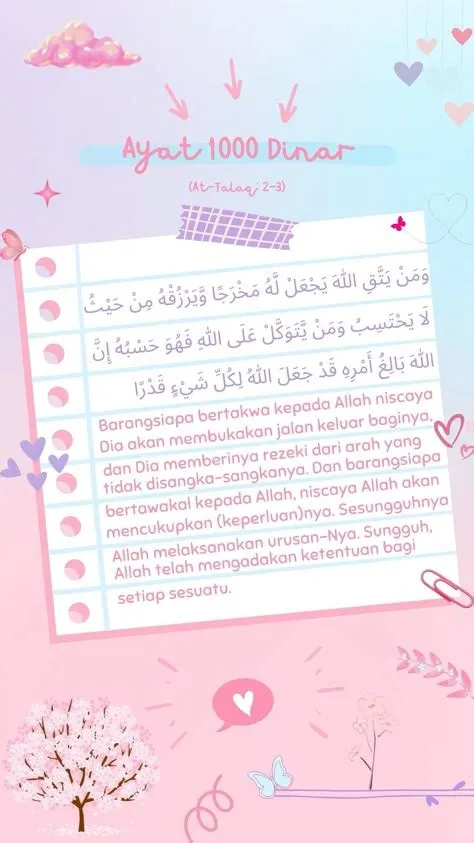 Ayat 1000 Dinar
(At-Talaq: 2-3)
وَمَنْ يَتَّقِ اللّٰهَ يَجْعَلْ لَّهُ مَخْرَجًا وَّيَرْزُقْهُ مِنْ حَيْثُ
لَا يَحْتَسِبُ وَمَنْ يَّتَوَكَّلْ عَلَى اللّٰهِ فَهُوَ حَسْبُهُ إِنَّ
اللّٰهَ بَالِغُ أَمْرِهِ قَدْ جَعَلَ اللّٰهُ لِكُلِّ شَيْءٍ قَدْرًا
Barangsiapa bertakwa kepada Allah niscaya
Dia akan membukakan jalan keluar baginya,
dan Dia memberinya rezeki dari arah yang
tidak disangka-sangkanya. Dan barangsiapa
bertawakal kepada Allah, niscaya Allah akan
mencukupkan (keperluan)nya. Sesungguhnya
Allah melaksanakan urusan-Nya. Sungguh,
Allah telah mengadakan ketentuan bagi
setiap sesuatu.